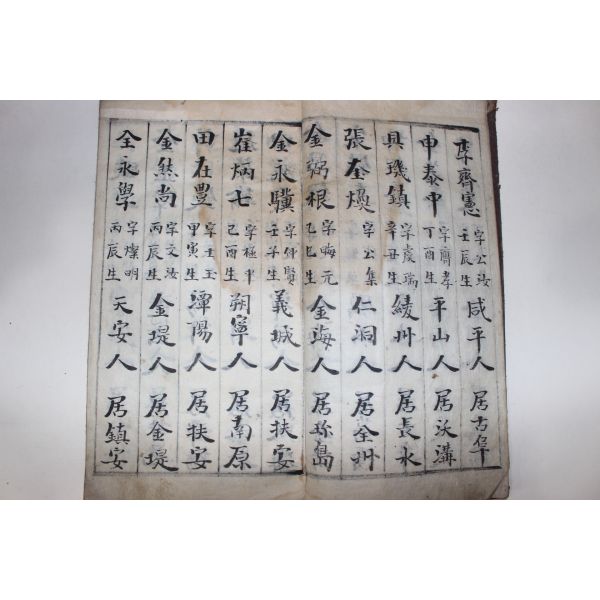 李齊憲 字公汝 壬辰生 咸平人 居古阜
申泰中 字齊孝 丁酉生 平山人 居沃溝
具璣鎮 字虞瑞 辛丑生 綾州人 居長水
張奎煥 字公集 仁洞人 居全州
金弼根 字晦元 乙巳生 金海人 居珍島
金永驥 字仲賢 壬子生 義城人 居扶安
崔炳七 字極平 己酉生 朔寧人 居南原
田在豊 字士玉 甲寅生 潭陽人 居扶安
金然尚 字文汝 丙辰生 金堤人 居金堤
全永學 字燦明 丙辰生 天安人 居鎮安